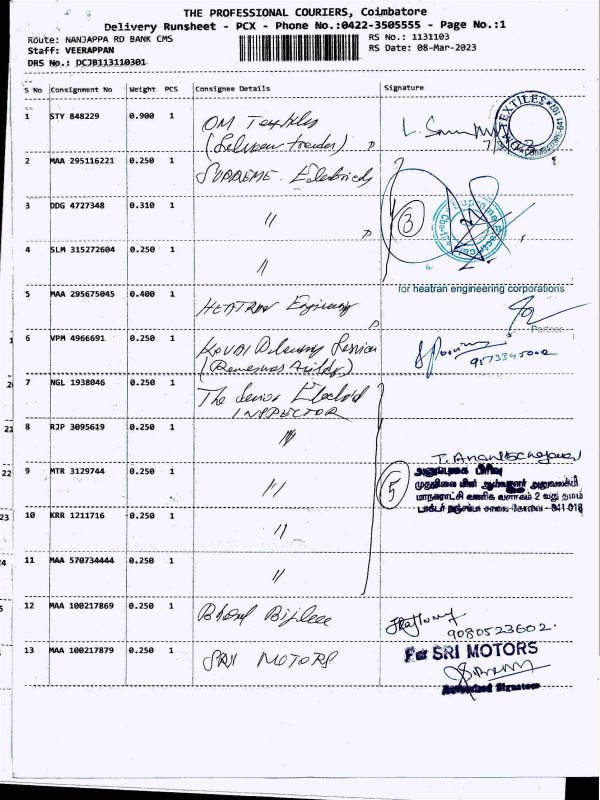 THE PROFESSIONAL COURIERS, Coimbatore
Delivery Runsheet - PCX - Phone No.:0422-3505555 - Page No.:1
Route: NANJAPPA RD BANK CMS
RS No.: 1131103
Staff: VEERAPPAN
RS Date: 08-Mar-2023
DRS No.: DCJB113110301
S No Consignment No Weight PCS Consignee Details Signature
1 STY 848229 0.900 1 OM Textiles
2 MAA 295116221 0.250 1 SUPREME Electricals
3 DDG 4727348 0.310 1 〃
3
4 SLM 315272604 0.250 1 〃
for heatran engineering corporations
5 MAA 295675045 0.400 1 HEATRAN Engineering
Partner
6 VPM 4966691 0.250 1
9573345002
7 NGL 1938046 0.250 1 The Senior Electrical
INSPECTOR
8 RJP 3095619 0.250 1 〃
9 MTR 3129744 0.250 1 〃
5
அனுப்புகை பிரிவு
முதுநிலை மின் ஆய்வாளர் அலுவலகம்
மாநகராட்சி வணிக வளாகம் 2 வது தளம்
டாக்டர் நஞ்சப்பா சாலை கோவை - 641 018
10 KRR 1211716 0.250 1 〃
11 MAA 570734444 0.250 1 〃
12 MAA 100217869 0.250 1 Bijlee
9080523602.
13 MAA 100217879 0.250 1 SRI MOTORS
For SRI MOTORS
Authorised Signature